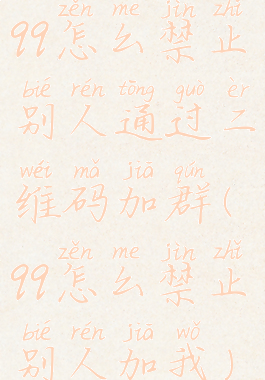 zěn me jìn zhǐ
99怎么禁止
bié rén tōng guò èr
别人通过二
wéi mǎ jiā qún
维码加群(
zěn me jìn zhǐ
99怎么禁止
bié rén jiā wǒ
别人加我)